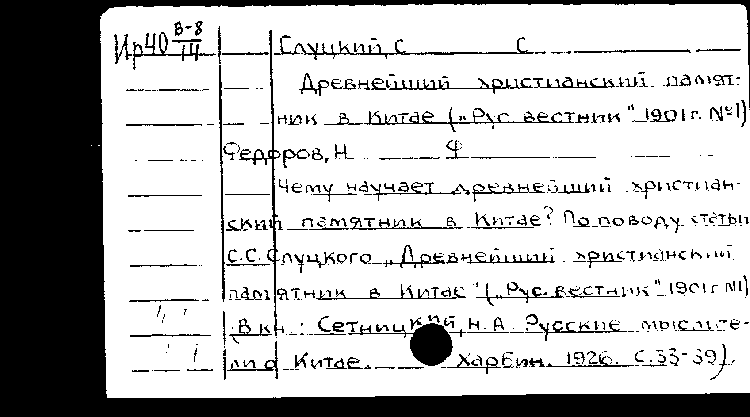 Ир40 В-8/14 Слуцкий, С С
Древнейший христианский памят-
ник в Китае („Рус. вестник" 1901г. №1)
Федоров, Н Ф
Чему научает древнейший христиан-
ский памятник в Китае? По поводу статьи
С.С.Слуцкого „Древнейший христианский
памятник в Китае" („Рус. вестник" 1901г №1)
(В кн: Сетницкий, Н.А. Русские мыслите-
ли о Китае. Харбин. 1926. С.33-39).